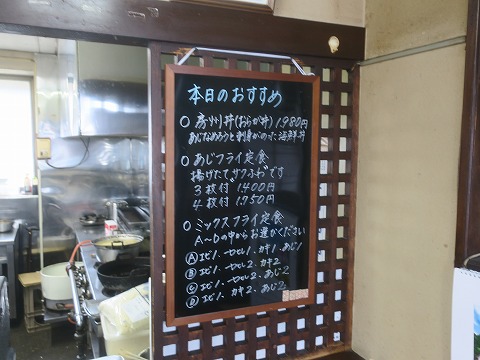 本日のおすすめ
○ 房州丼(おらが丼) 1,980円
あじなめろうと刺身がのった海鮮丼
○ あじフライ定食
揚げたて"サクふわ"です
3枚付 1,400円
4枚付 1,750円
○ ミックスフライ定食
A〜Dの中からお選びください
Ⓐ エビ1、ヒレ1、カキ1、あじ1
Ⓑ エビ1、ヒレ2、カキ2
Ⓒ エビ1、ヒレ2、あじ2
Ⓓ エビ1、カキ2、あじ2